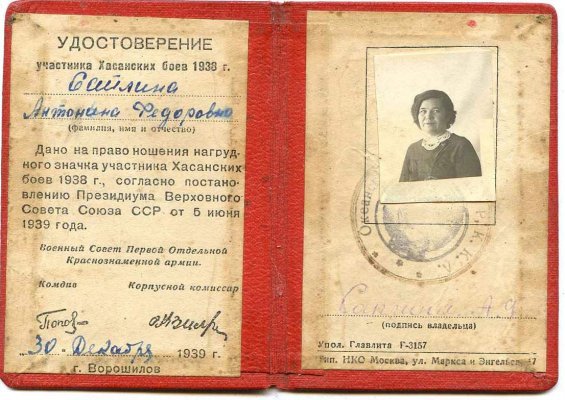 УДОСТОВЕРЕНИЕ
участника Хасанских боев 1938 г.
Сайлина
Антонина Федоровна
(фамилия, имя и отчество)
Дано на право ношения нагруд-
ного значка участника Хасанских
боев 1938 г., согласно постано-
влению Президиума Верховного
Совета Союза ССР от 5 июня
1939 года.
Военный Совет Первой Отдельной
Краснознаменной армии.
Комдив Корпусной комиссар
30. Декабря 1939 г.
г. Ворошилов
Р. К. К. А.
(подпись владельца)
Упол. Главлита Г-3157
Тип. НКО Москва, ул. Маркса и Энгельса, 17